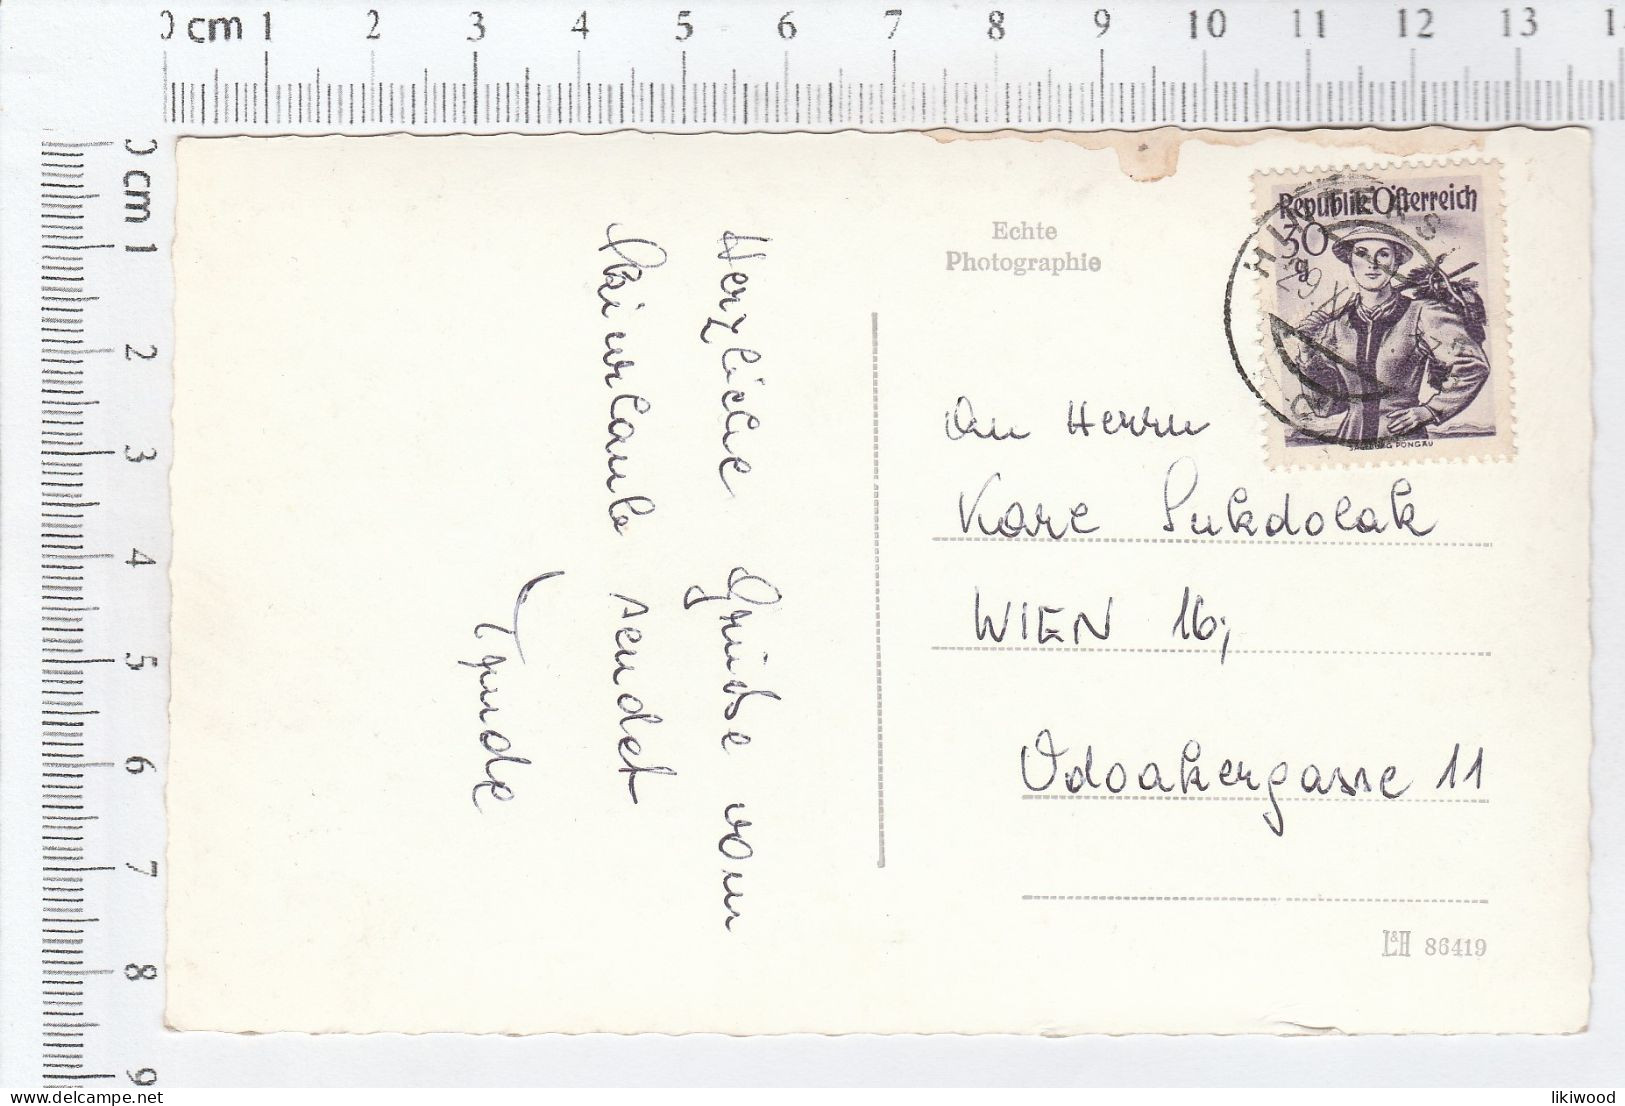 0 cm 1 2 3 4 5 6 7 8 9 10 11 12 13 14
0 cm 1 2 3 4 5 6 7 8 9
Herzliche Grüsse vom
Skiurlaub sendet
Echte
Photographie
Republik Österreich
30 g
SALZBURG PONGAU
29.XI
An Herrn
Karl Sukdolak
WIEN 16;
Odoakergasse 11
L&H 86419
likiwood